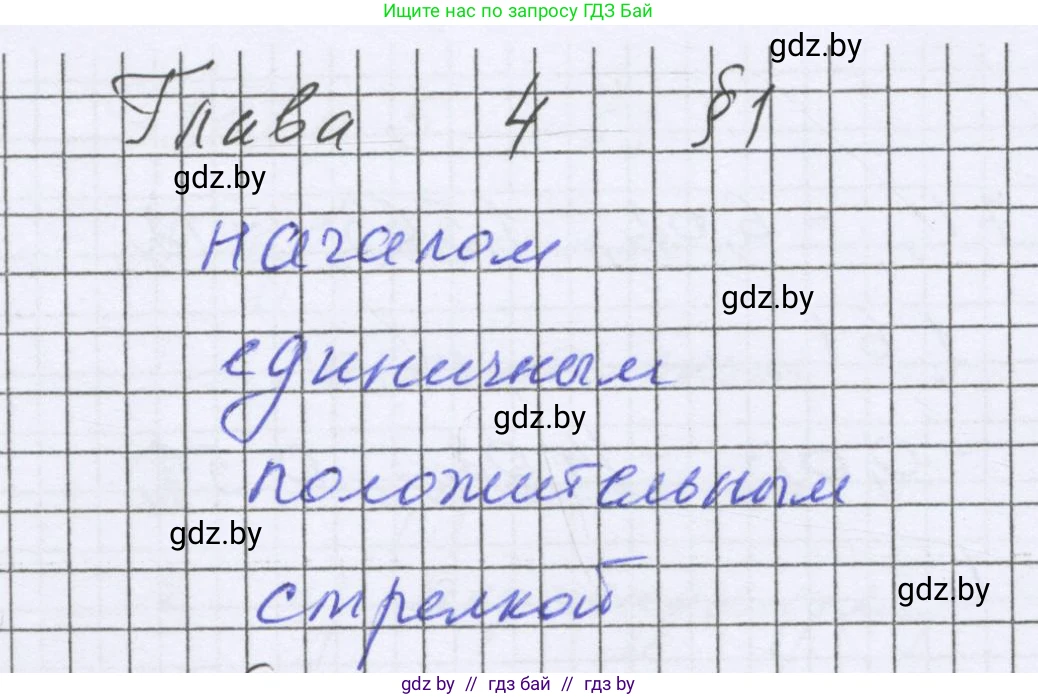 Ищите нас по запросу ГДЗ Бай
gdz.by
Глава 4 §1
gdz.by
началом
gdz.by
единичным
gdz.by
положительным
gdz.by
стрелкой
gdz.by
gdz.by // гдз бай // гдз by